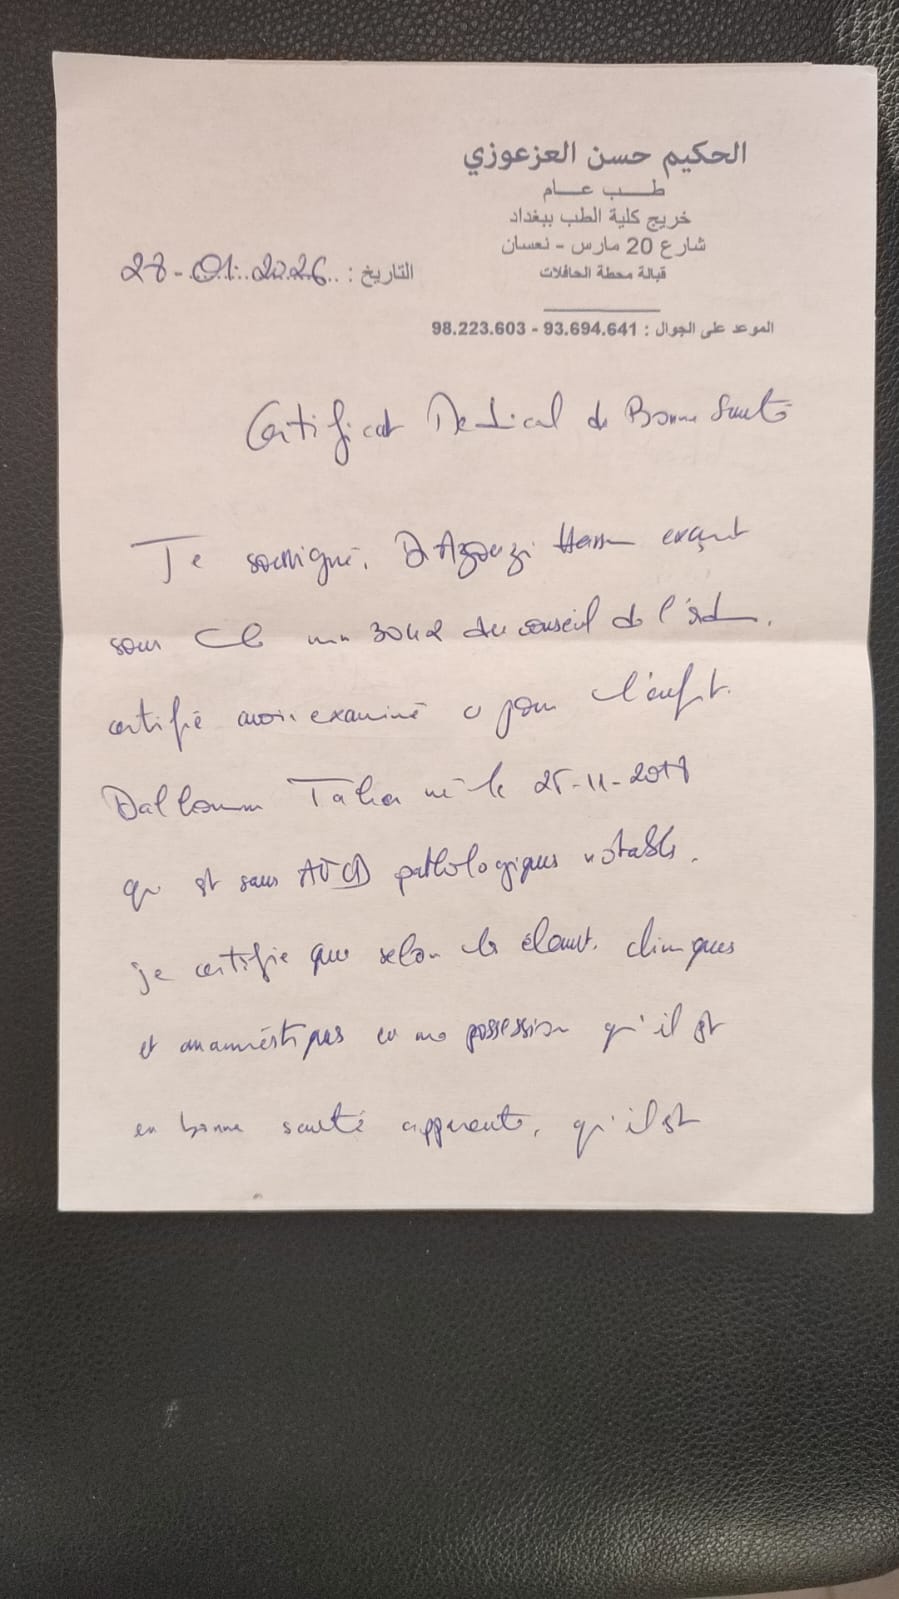 الحكيم حسن العزعوزي
طب عام
خريج كلية الطب ببغداد
شارع 20 مارس - نعسان
قبالة محطة الحافلات
التاريخ : 28-01-2026
الموعد على الجوال : 93.694.641 - 98.223.603
Certificat Medical de Bonne Santé
Je soussigné, Dr Azouzi Hassen exerçant
sous le 3042 du conseil de l'ordre.
certifie avoir examiné ce jour l'enfant
Taher né le
qui est sans ATCD pathologiques notables.
je certifie que selon les élements cliniques
et anamnéstiques en ma possession qu'il est
en bonne santé apparente, qu'il est